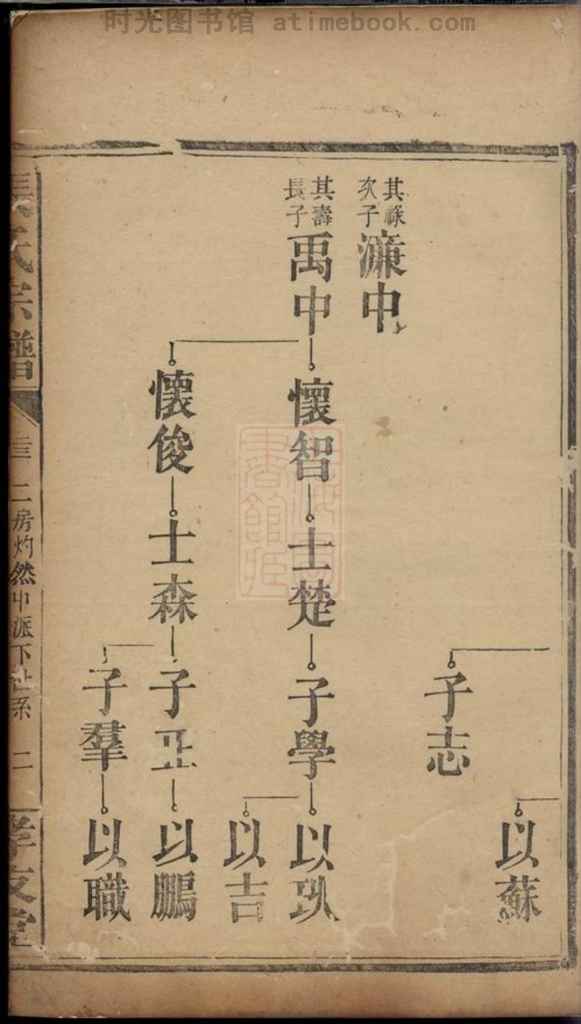 时光图书馆 atimebook.com
以蘇
子志
其祿
次子
濂中
其壽
長子
禹中
懷智
士楚
子學
以玖
以吉
懷俊
士森
子正
以鵬
子羣
以職
氏宗譜
二房灼然中派下世系
孝友堂